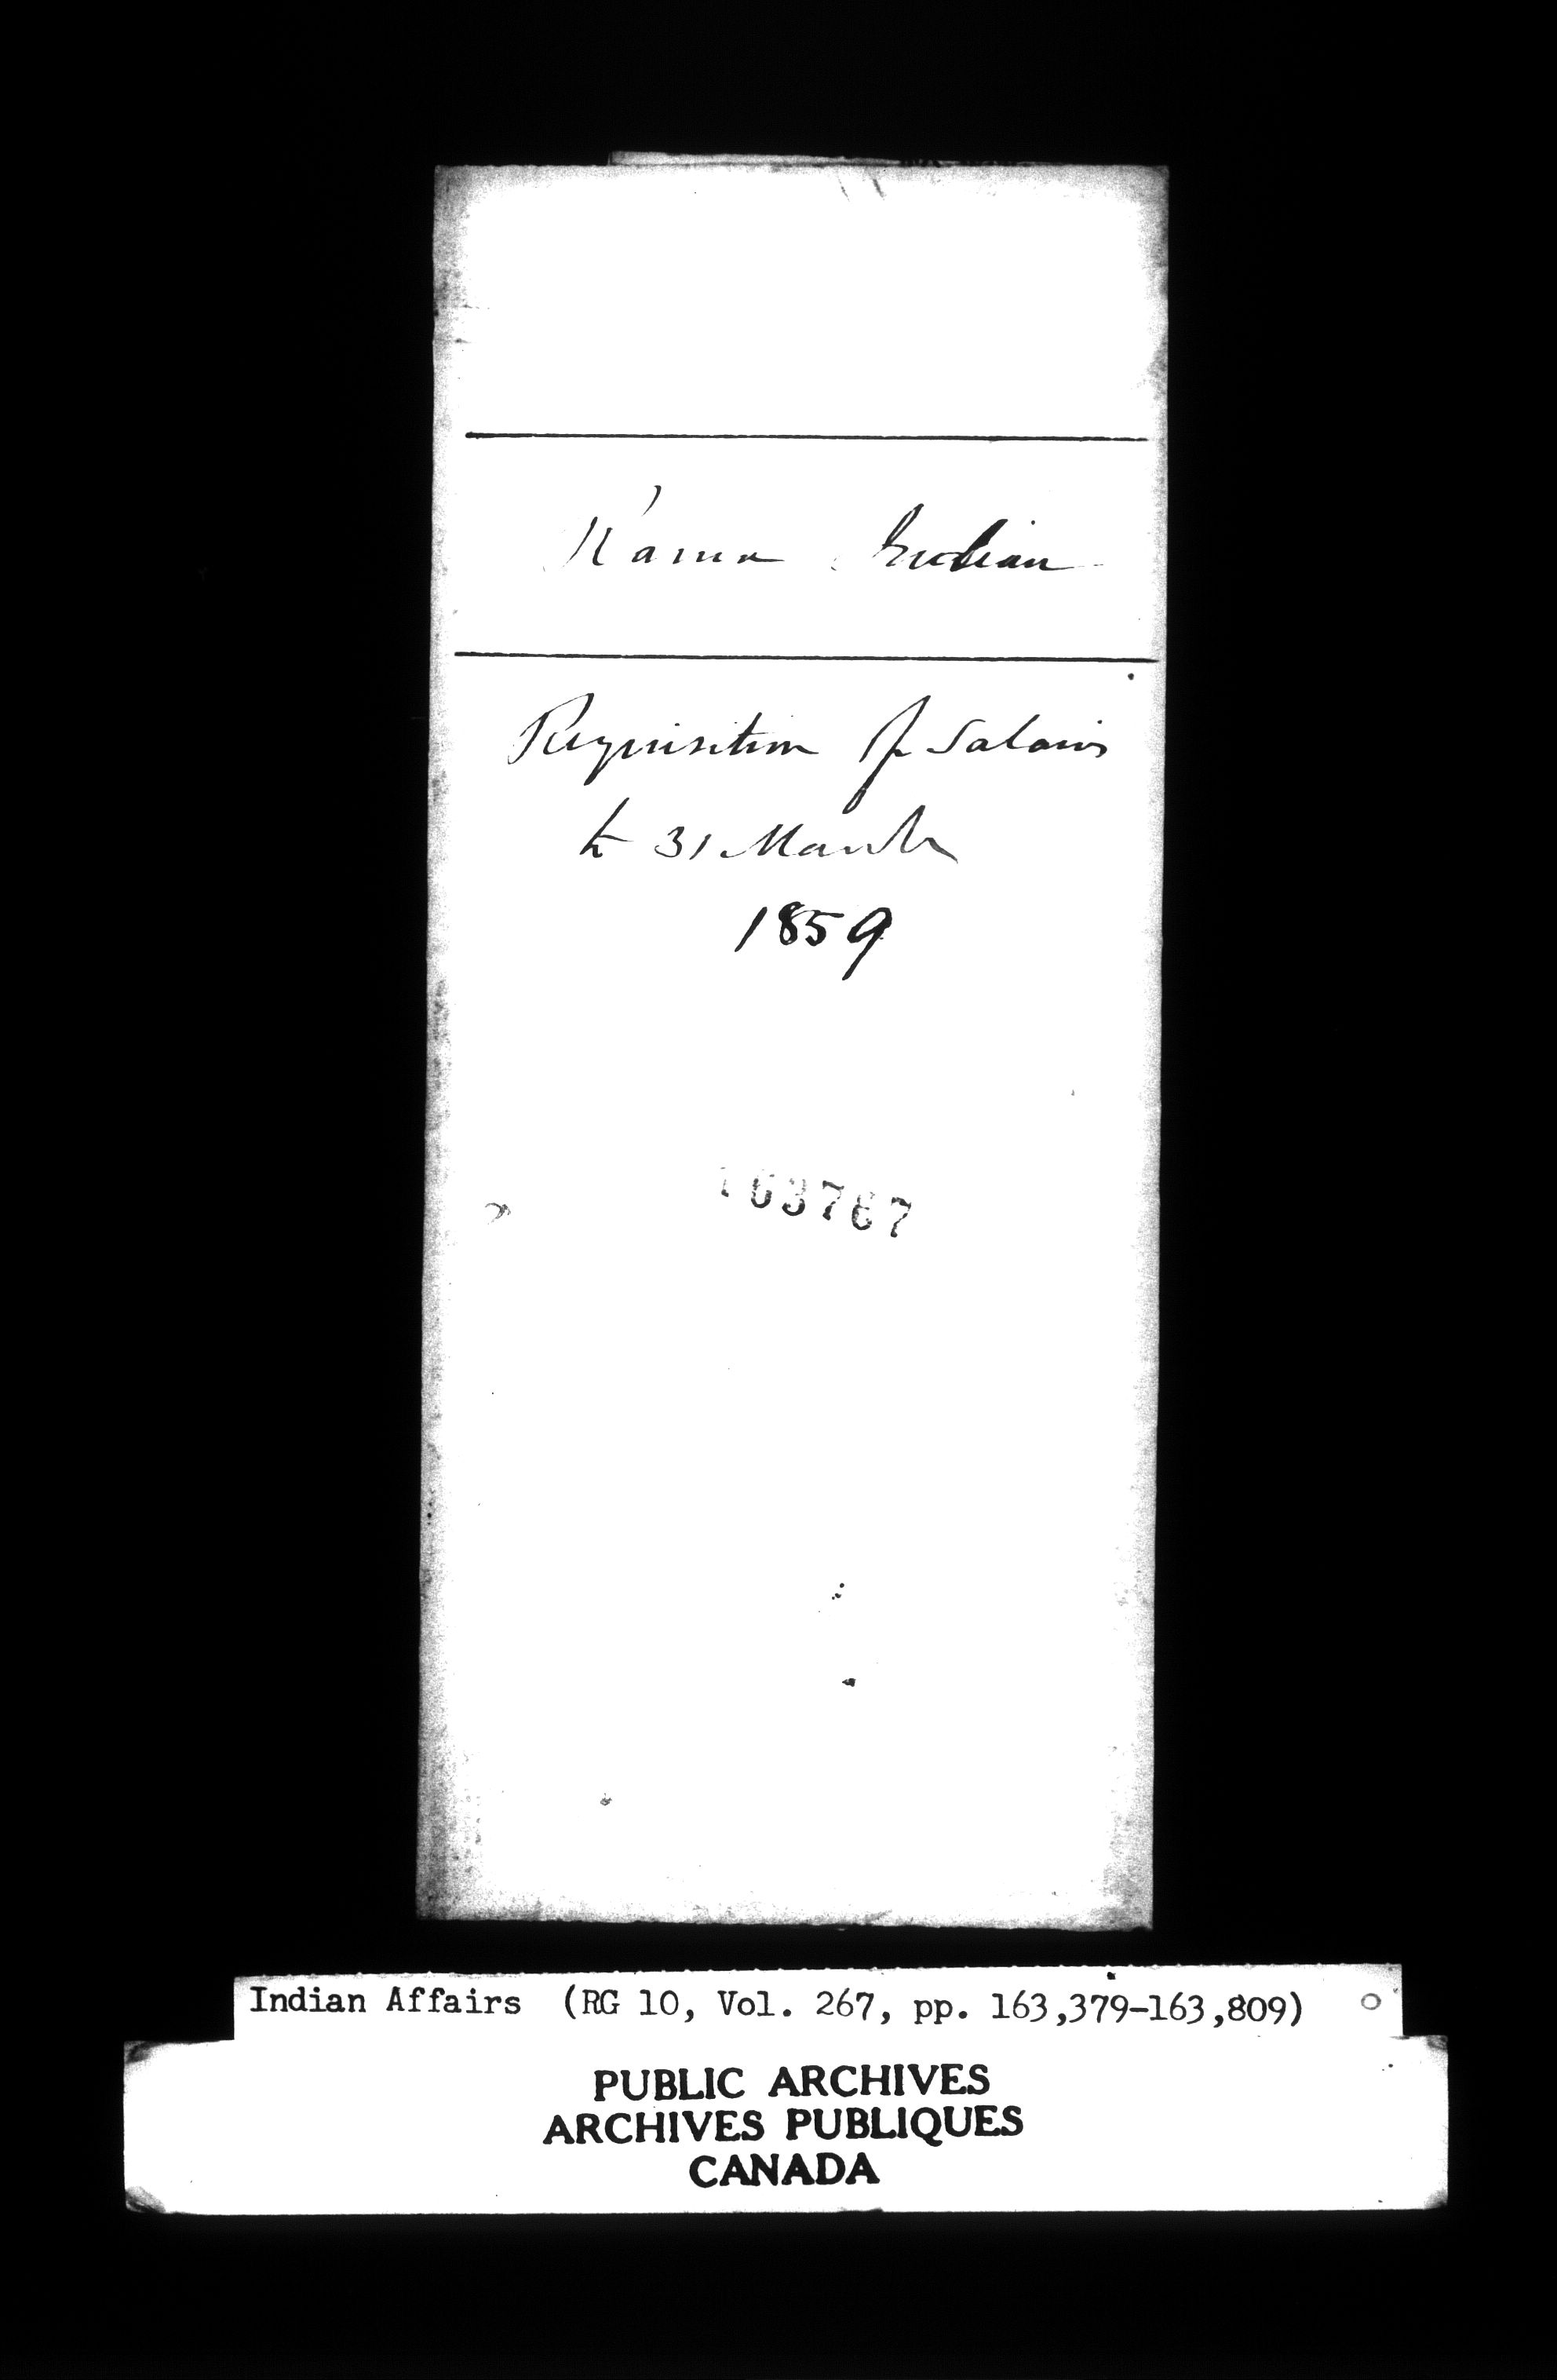 Rama Indian
Requisition for Salaries
to 31 March
1859
163767
Indian Affairs (RG 10, Vol. 267, pp. 163,379-163,809)
PUBLIC ARCHIVES
ARCHIVES PUBLIQUES
CANADA